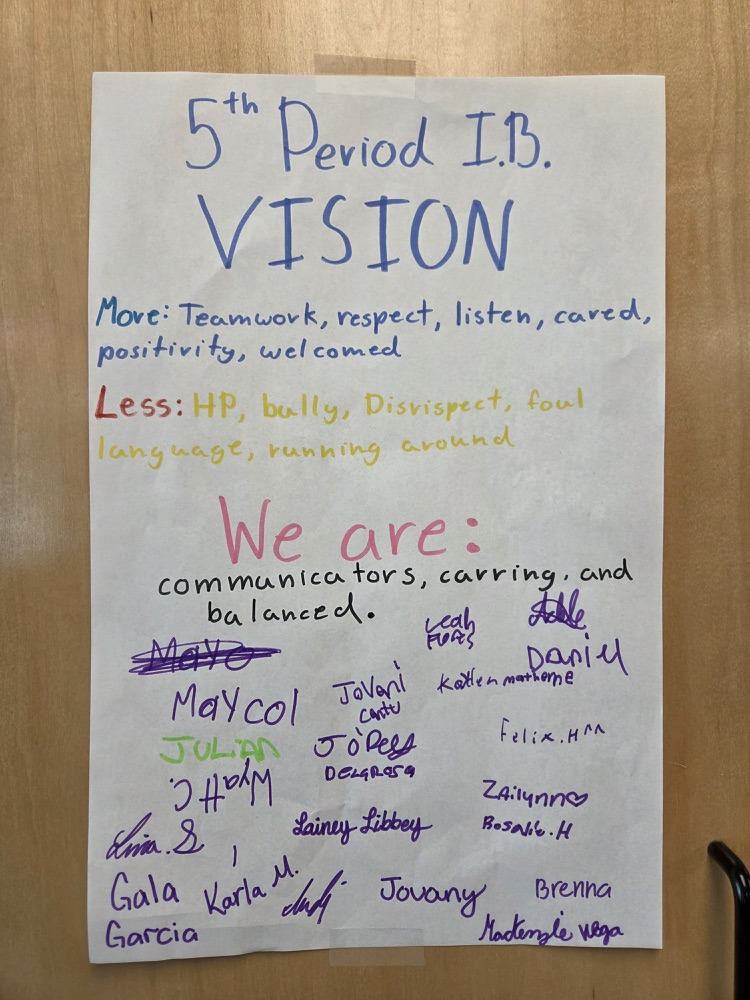 5th Period I.B.
VISION
More: Teamwork, respect, listen, cared,
positivity, welcomed
Less: HP, bully, Disrispect, foul
language, running around
We are:
communicators, carring, and
balanced.
Leah
Mayo
Daniel
Maycol
Jovani
Cantu
JULIAN
Felix.H^^
DELAROSA
Wyatt C.
Zailynn♡
Lainey Libbey
Rosalie.H
Lina.S
Gala
Garcia
Karla M.
Jovany
Brenna
Mackenzie Vega